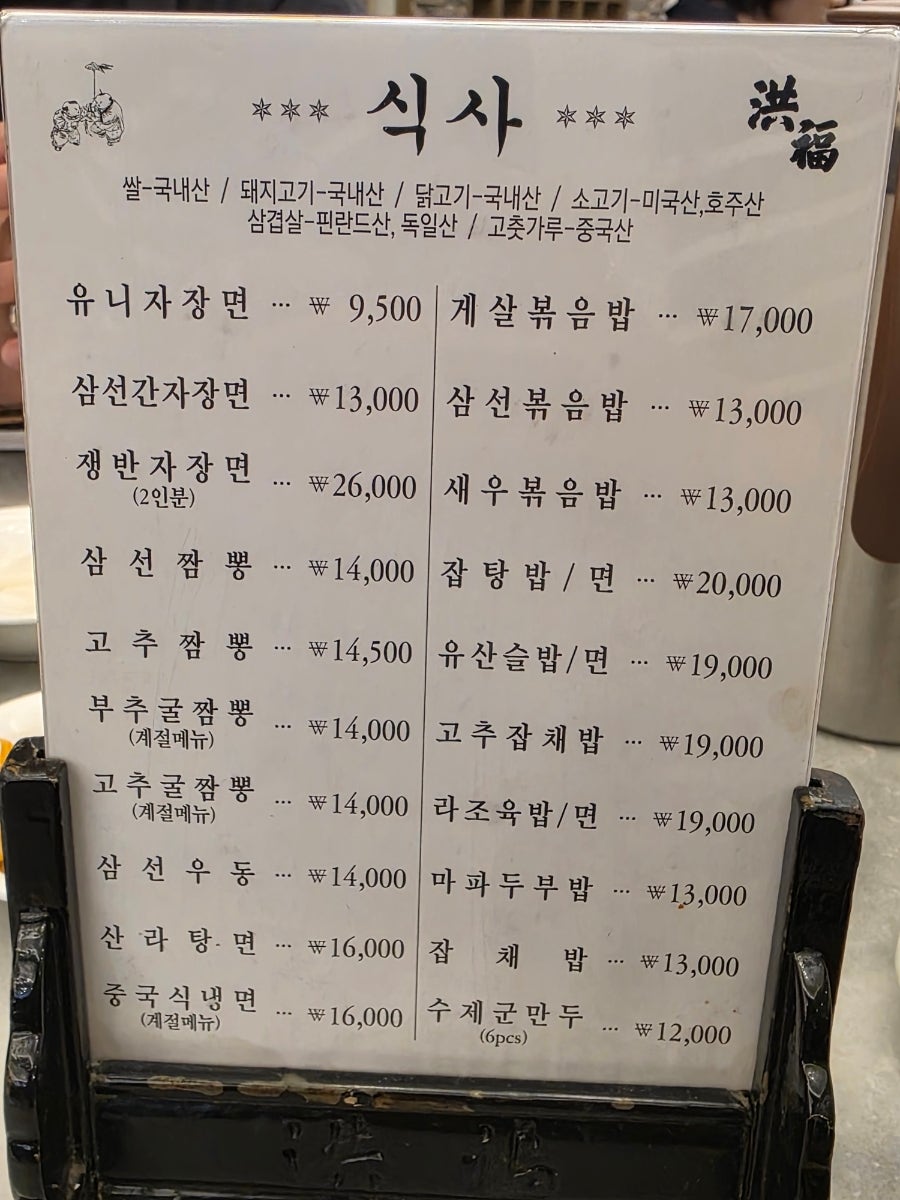 *** 식사 ***
洪福
쌀-국내산 / 돼지고기-국내산 / 닭고기-국내산 / 소고기-미국산,호주산
삼겹살-핀란드산, 독일산 / 고춧가루-중국산
유니자장면 ... ₩ 9,500
삼선간자장면 ... ₩13,000
쟁반자장면 ... ₩26,000
(2인분)
삼선짬뽕 ... ₩14,000
고추짬뽕 ... ₩14,500
부추굴짬뽕 ... ₩14,000
(계절메뉴)
고추굴짬뽕 ... ₩14,000
(계절메뉴)
삼선우동 ... ₩14,000
산라탕면 ... ₩16,000
중국식냉면 ... ₩16,000
(계절메뉴)
게살볶음밥 ... ₩17,000
삼선볶음밥 ... ₩13,000
새우볶음밥 ... ₩13,000
잡탕밥/면 ... ₩20,000
유산슬밥/면 ... ₩19,000
고추잡채밥 ... ₩19,000
라조육밥/면 ... ₩19,000
마파두부밥 ... ₩13,000
잡채밥 ... ₩13,000
수제군만두 ... ₩12,000
(6pcs)